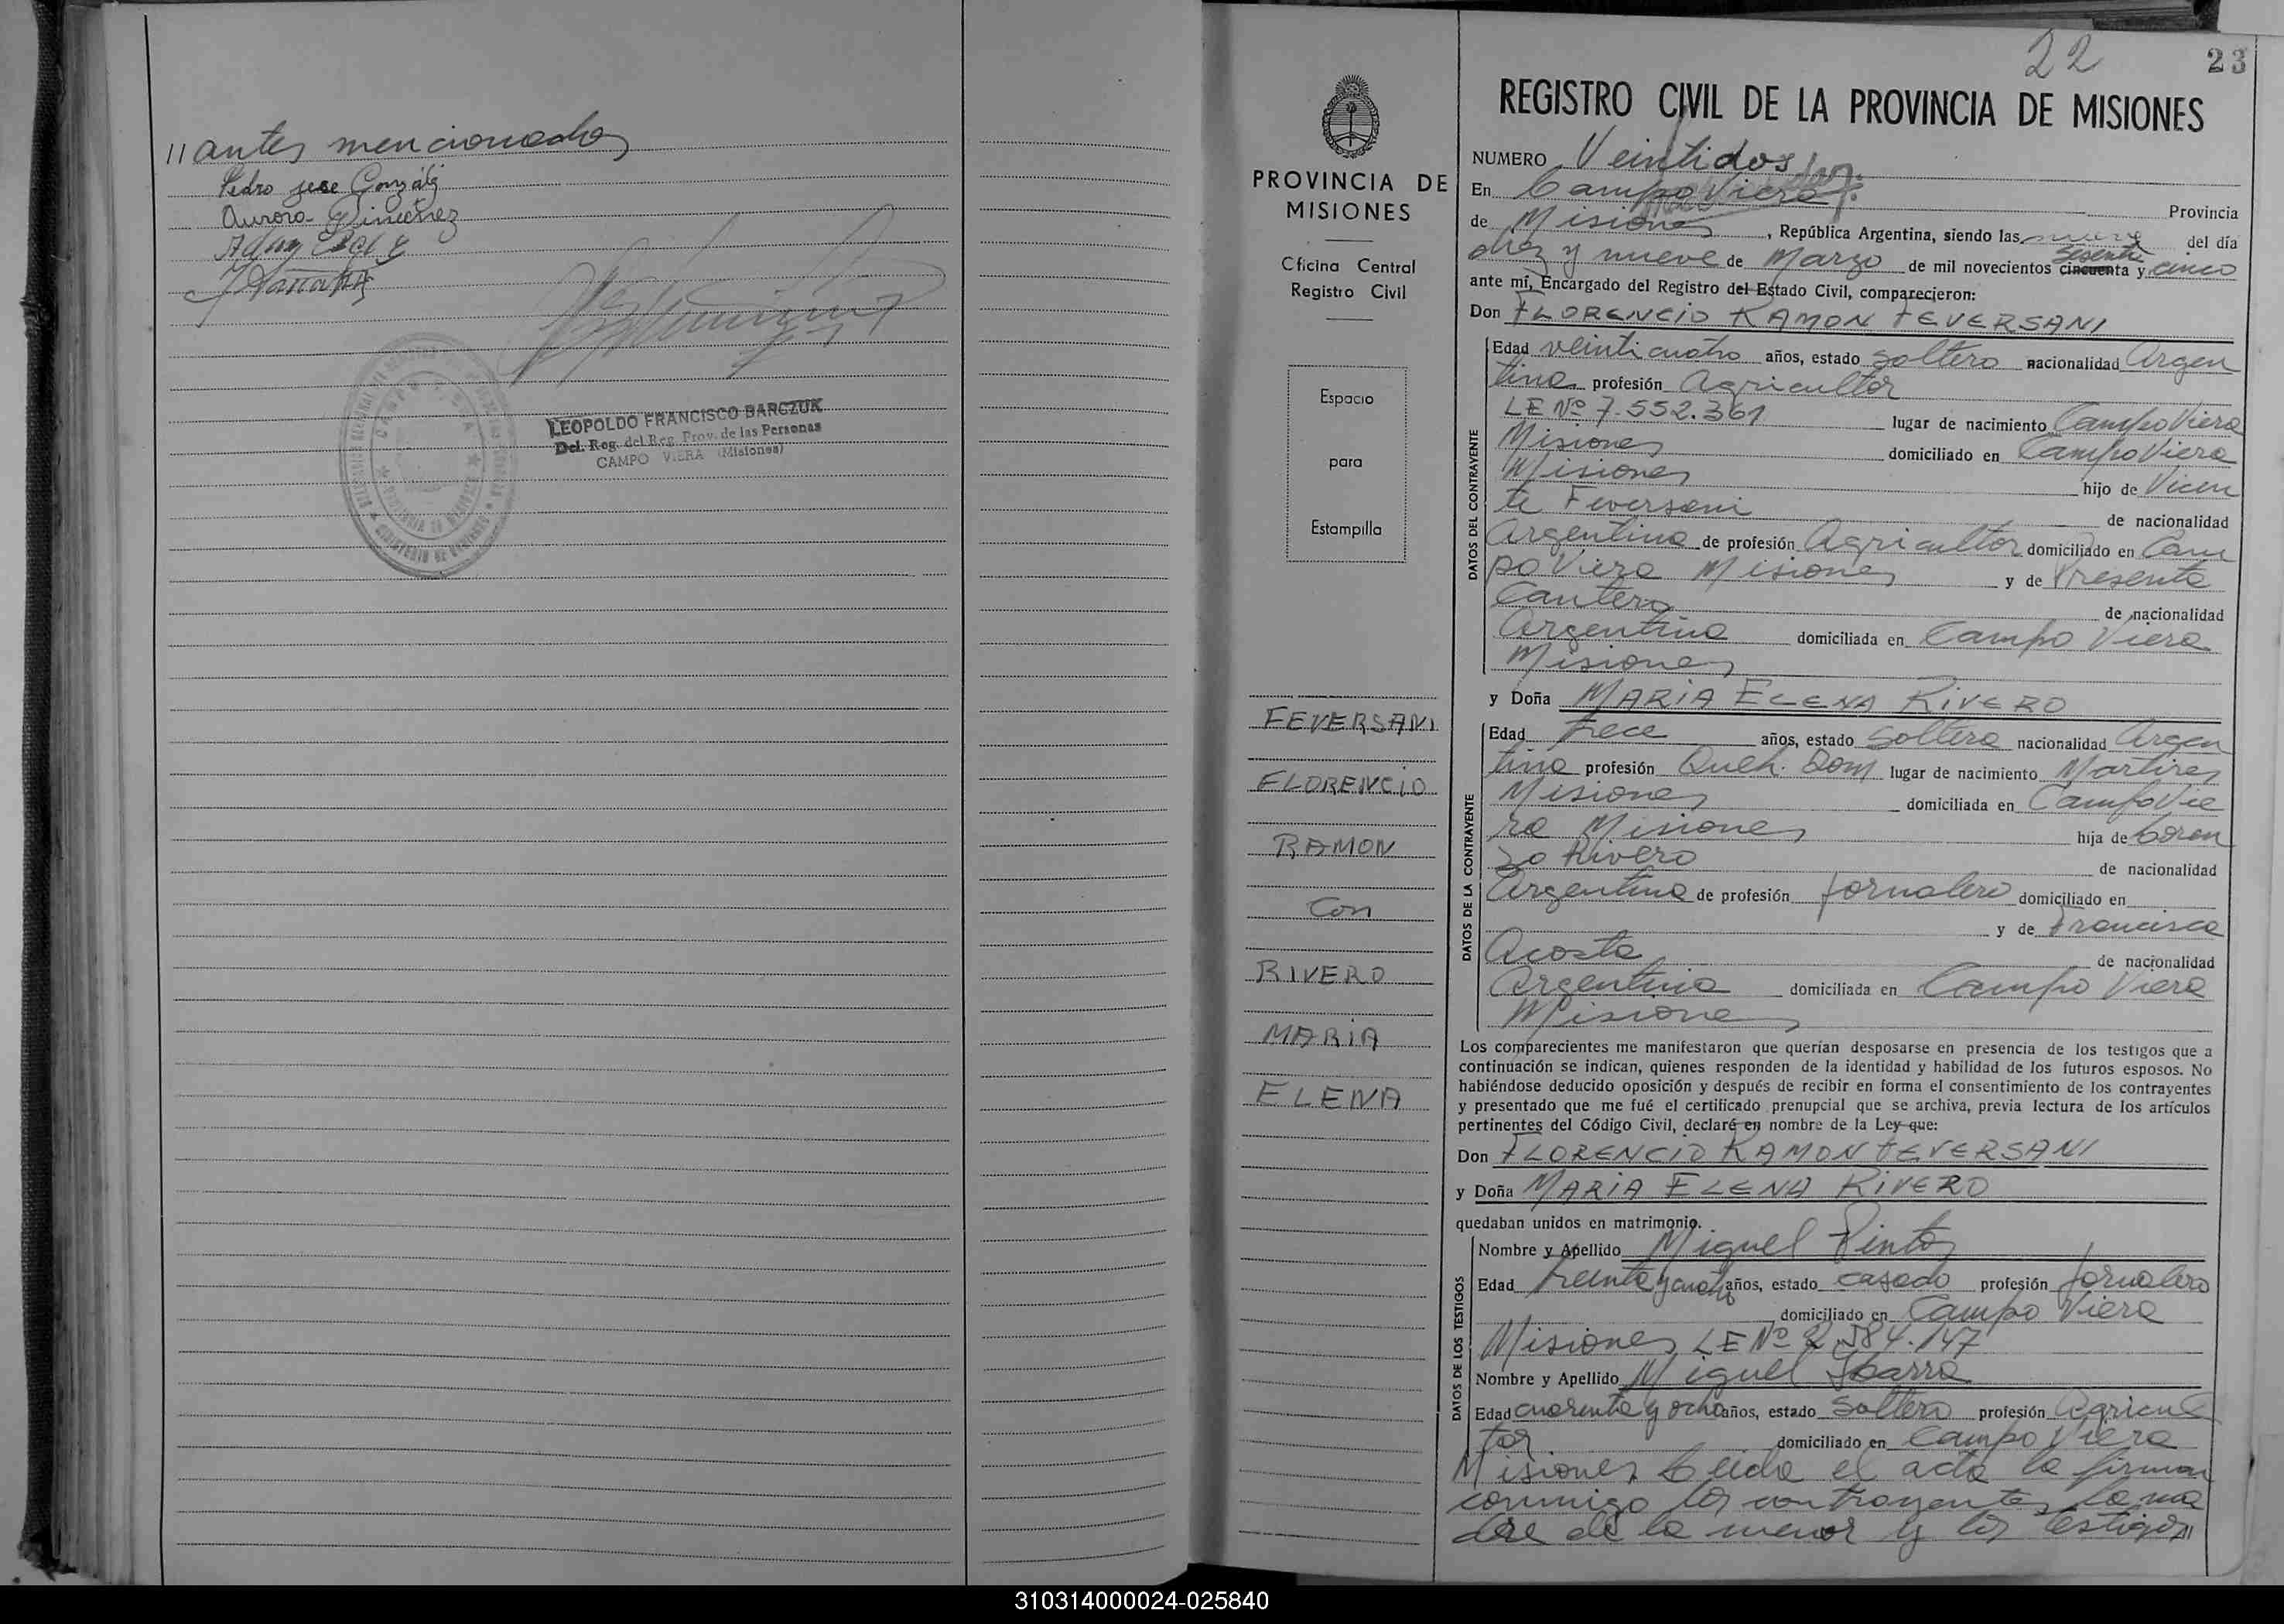 // antes mencionados
Pedro jose Gonzalez
Aurora Gimenez
LEOPOLDO FRANCISCO BARCZUK
Del. Reg. del Reg. Prov. de las Personas
CAMPO VIERA (Misiones)
22
23
PROVINCIA DE
MISIONES
Oficina Central
Registro Civil
Espacio
para
Estampilla
FEVERSANI
FLORENCIO
RAMON
Con
RIVERO
MARIA
ELENA
REGISTRO CIVIL DE LA PROVINCIA DE MISIONES
NUMERO Veintidos
En Campo Viera Provincia
de Misiones, República Argentina, siendo las nueve del día
diez y nueve de Marzo de mil novecientos cincuenta sesenta y cinco
ante mí, Encargado del Registro del Estado Civil, comparecieron:
Don FLORENCIO RAMON FEVERSANI
DATOS DEL CONTRAYENTE
Edad veinticuatro años, estado soltero nacionalidad Argen
tina profesión Agricultor
LE Nº 7.552.361 lugar de nacimiento Campo Viera
Misiones domiciliado en Campo Viera
Misiones hijo de Vicen
te Feversani de nacionalidad
Argentina de profesión Agricultor domiciliado en Cam
po Viera Misiones y de Presenta
Cantero de nacionalidad
Argentina domiciliada en Campo Viera
Misiones
y Doña MARIA ELENA RIVERO
DATOS DE LA CONTRAYENTE
Edad trece años, estado soltera nacionalidad Argen
tina profesión Queh. Dom lugar de nacimiento Martires
Misiones domiciliada en Campo Vie
ra Misiones hija de Loren
zo Rivero de nacionalidad
Argentina de profesión Jornalero domiciliado en
y de Francisca
Acosta de nacionalidad
Argentina domiciliada en Campo Viera
Misiones
Los comparecientes me manifestaron que querían desposarse en presencia de los testigos que a
continuación se indican, quienes responden de la identidad y habilidad de los futuros esposos. No
habiéndose deducido oposición y después de recibir en forma el consentimiento de los contrayentes
y presentado que me fué el certificado prenupcial que se archiva, previa lectura de los artículos
pertinentes del Código Civil, declaré en nombre de la Ley que:
Don FLORENCIO RAMON FEVERSANI
y Doña MARIA ELENA RIVERO
quedaban unidos en matrimonio.
DATOS DE LOS TESTIGOS
Nombre y Apellido Miguel Pinto
Edad treinta y cuatro años, estado casado profesión Jornalero
domiciliado en Campo Viera
Misiones LE Nº 2.584.147
Nombre y Apellido Miguel Ibarra
Edad cuarenta y ocho años, estado soltero profesión Agricul
tor domiciliado en Campo Viera
Misiones Leida el acta la firman
conmigo los contrayentes, la ma
dre de la menor y los testigos //
310314000024-025840